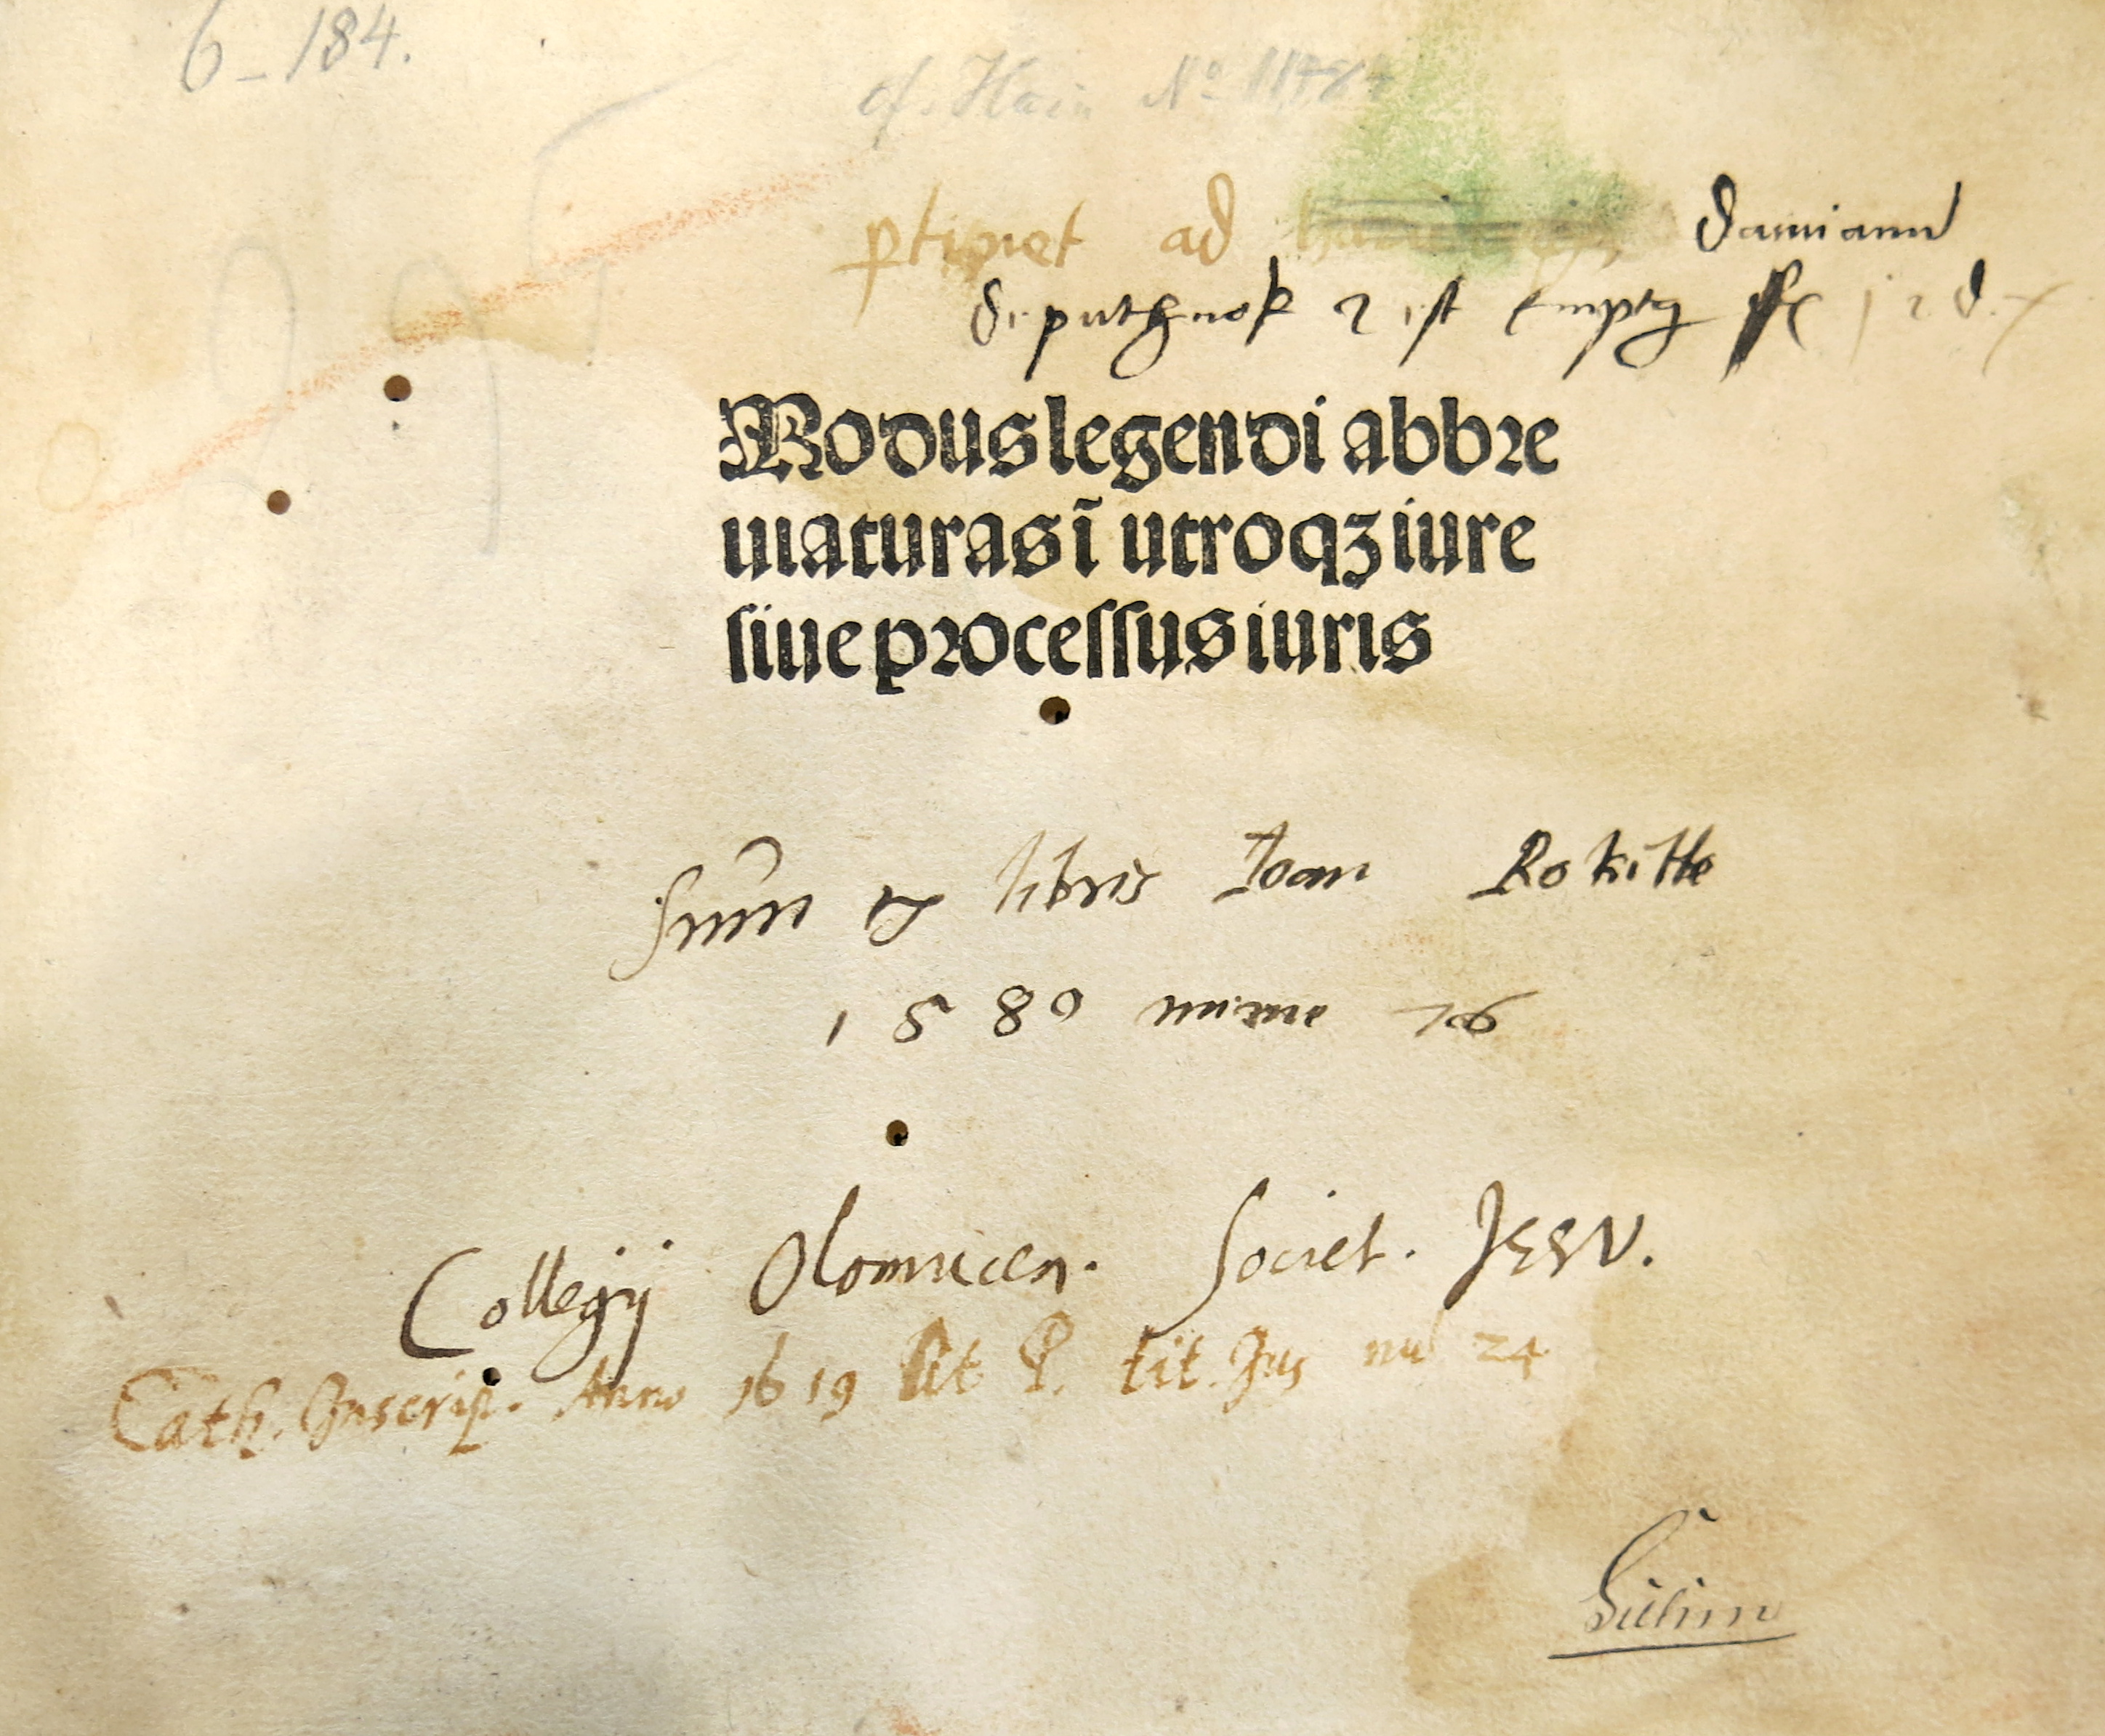 6-184.
cf. Hain Nº
ptinet ad damianu
de putgnok 2 est empt9
Modus legendi abbꝛe
uiaturas ī utroqꝫ iure
siue pꝛocessus iuris
Sum ex libris Joan Rokitte
1580
Collegij Olomucen. Societ. JESV.
Cath. Inscrip. Anno 1619 lit P. tit. Jus nu 24